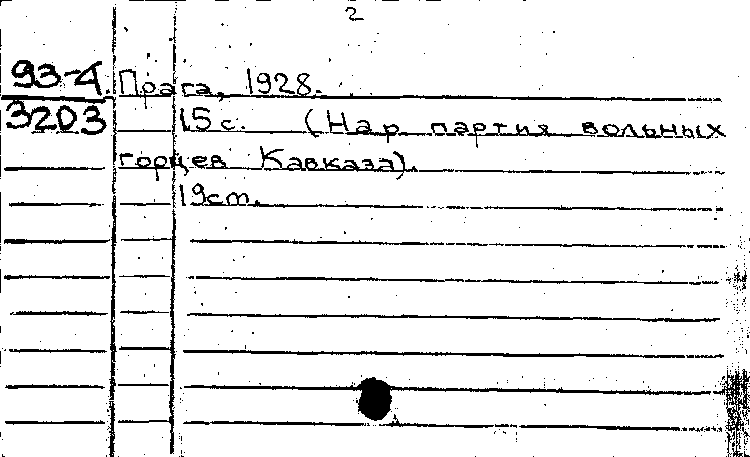 2
93-4. Прага, 1928.
3203 15 с. (Нар. партия вольных
горцев Кавказа).
19 cm.